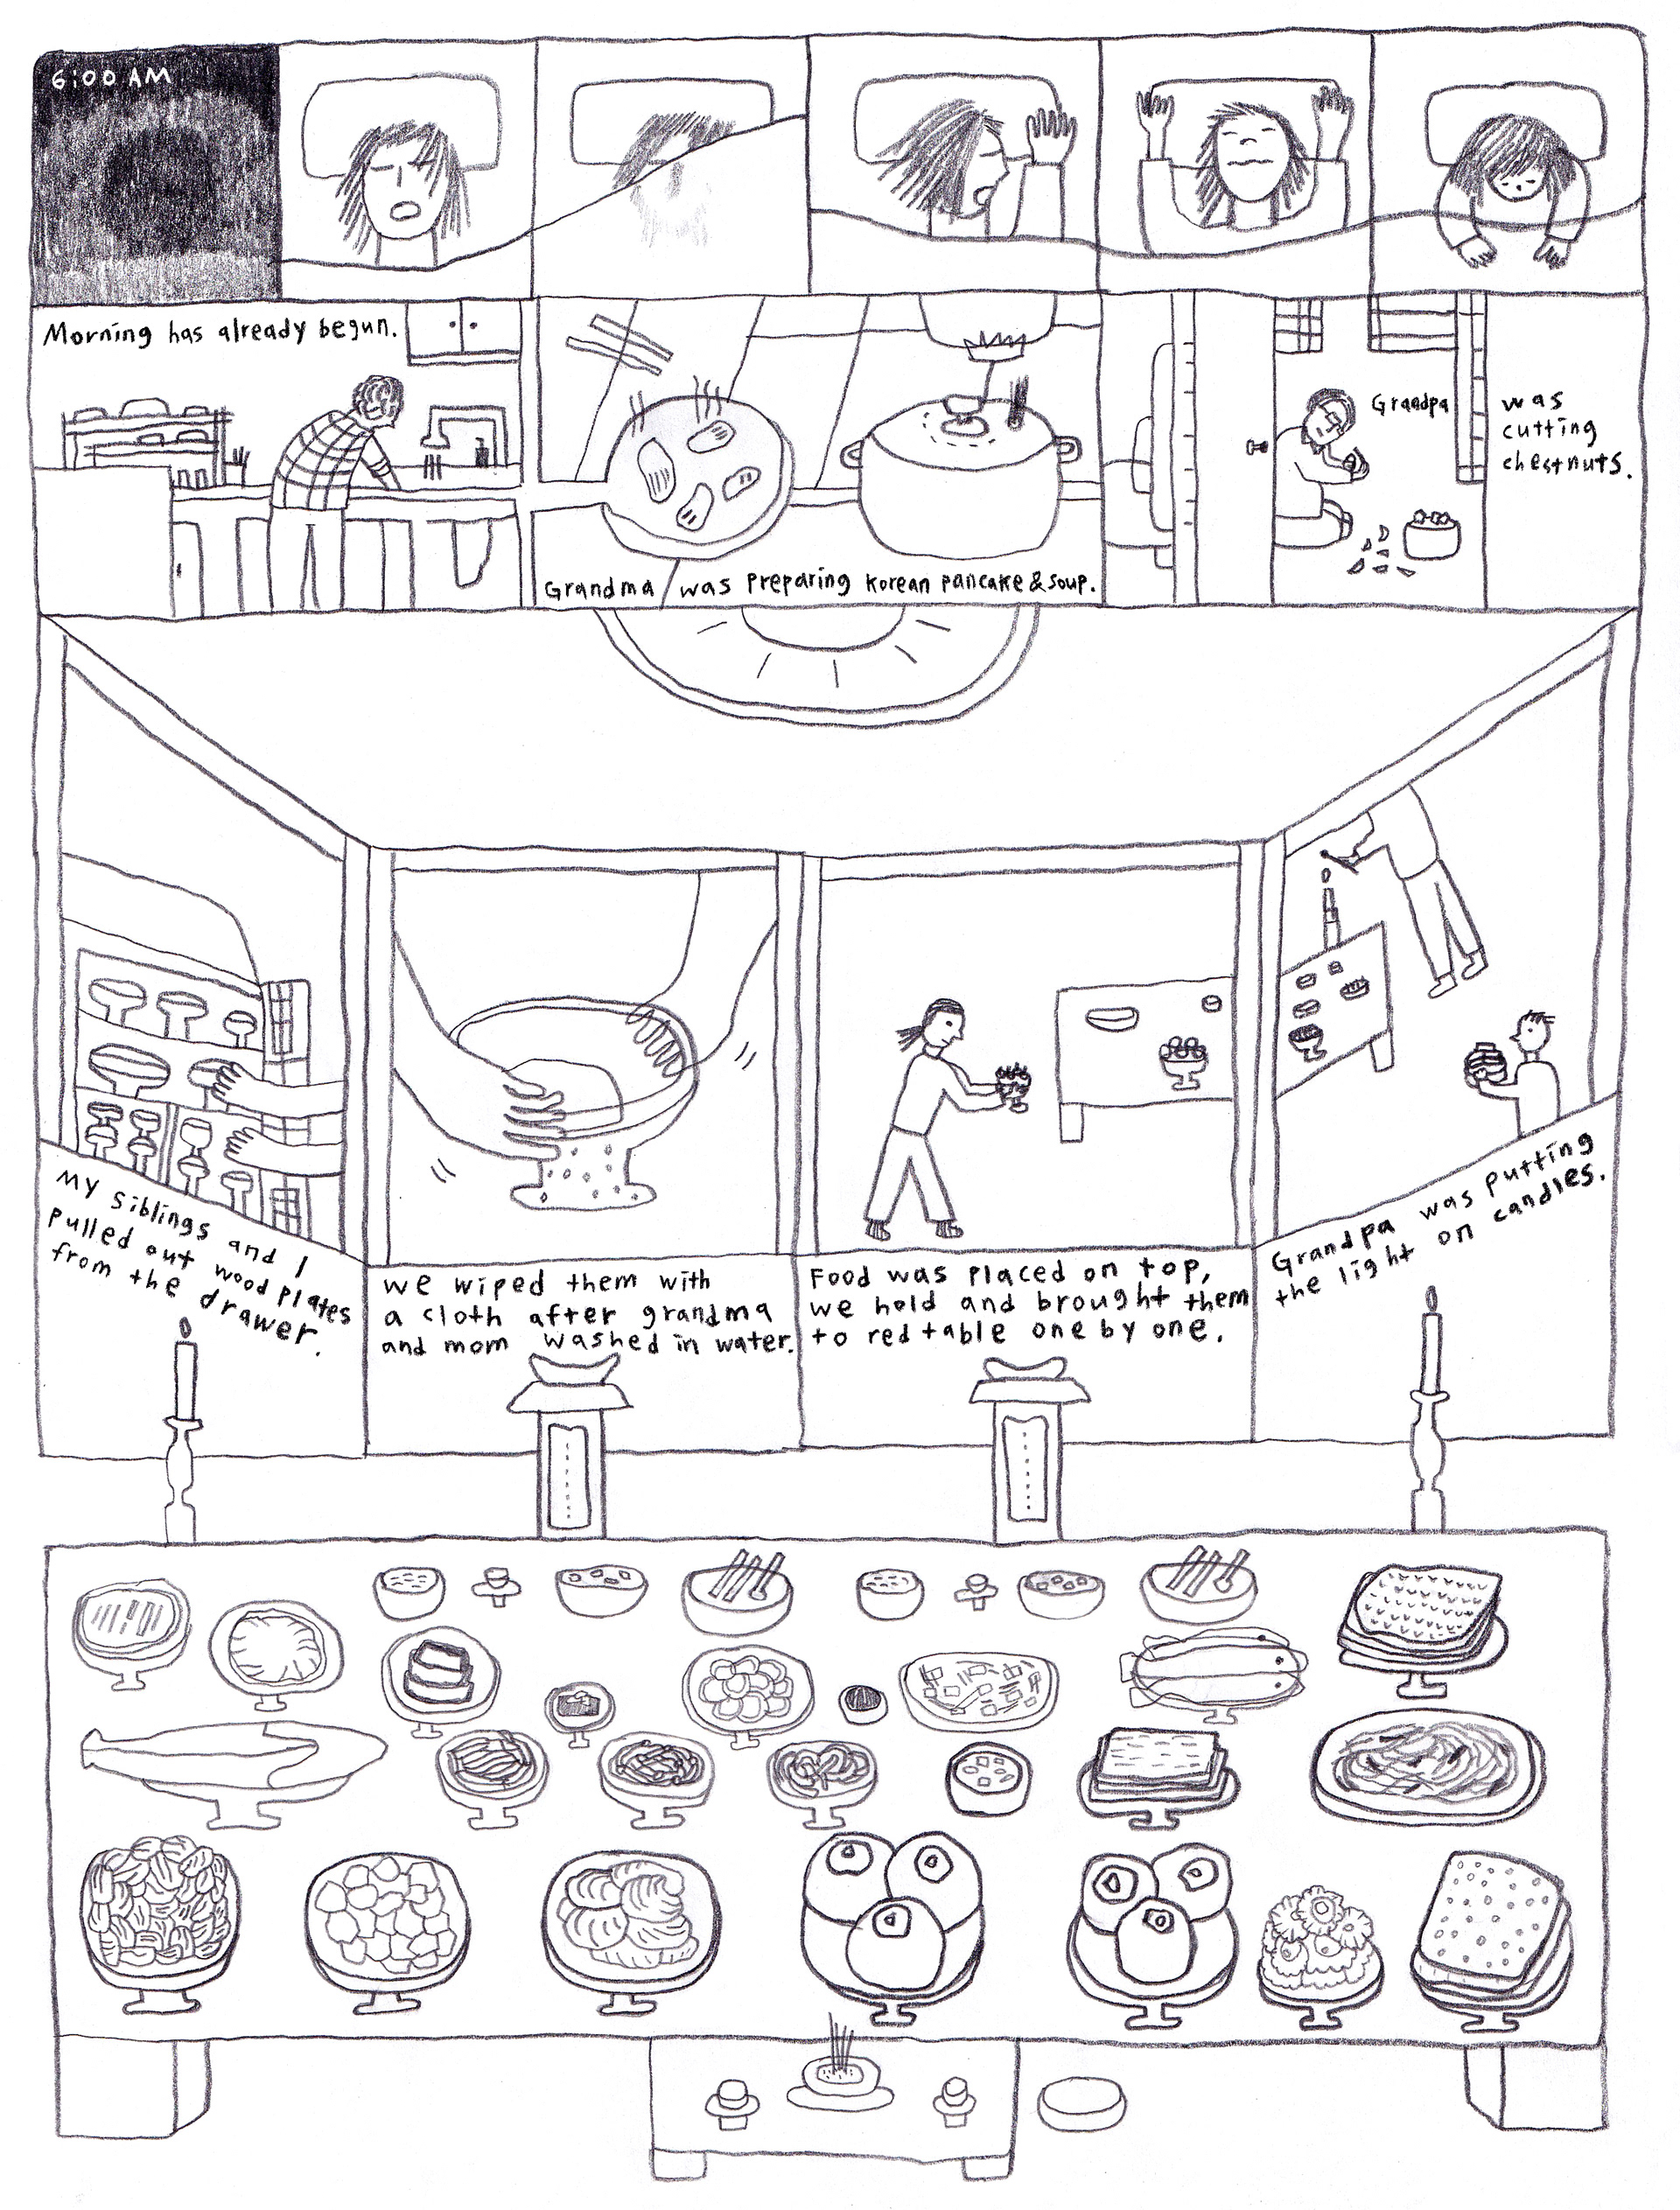 6:00 AM
Morning has already begun.
Grandma was preparing korean pancake & soup.
Grandpa
was
cutting
chestnuts.
My siblings and I
pulled out wood plates
from the drawer.
we wiped them with
a cloth after grandma
and mom washed in water.
Food was placed on top,
we hold and brought them
to red table one by one.
Grandpa was putting
the light on candles.